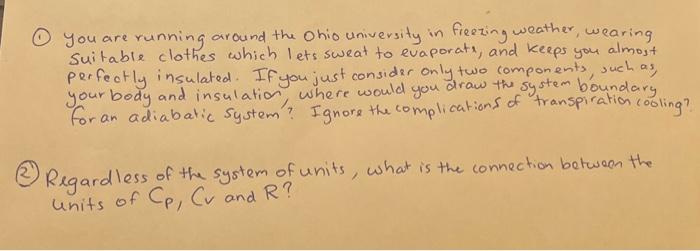 ① You are running around the Ohio university in freezing weather, wearing
suitable clothes which lets sweat to evaporate, and keeps you almost
perfectly insulated. If you just consider only two components, such as,
your body and insulation, where would you draw the system boundary
for an adiabatic system? Ignore the complications of transpiration cooling?
② Regardless of the system of units, what is the connection between the
units of Cp, Cv and R?